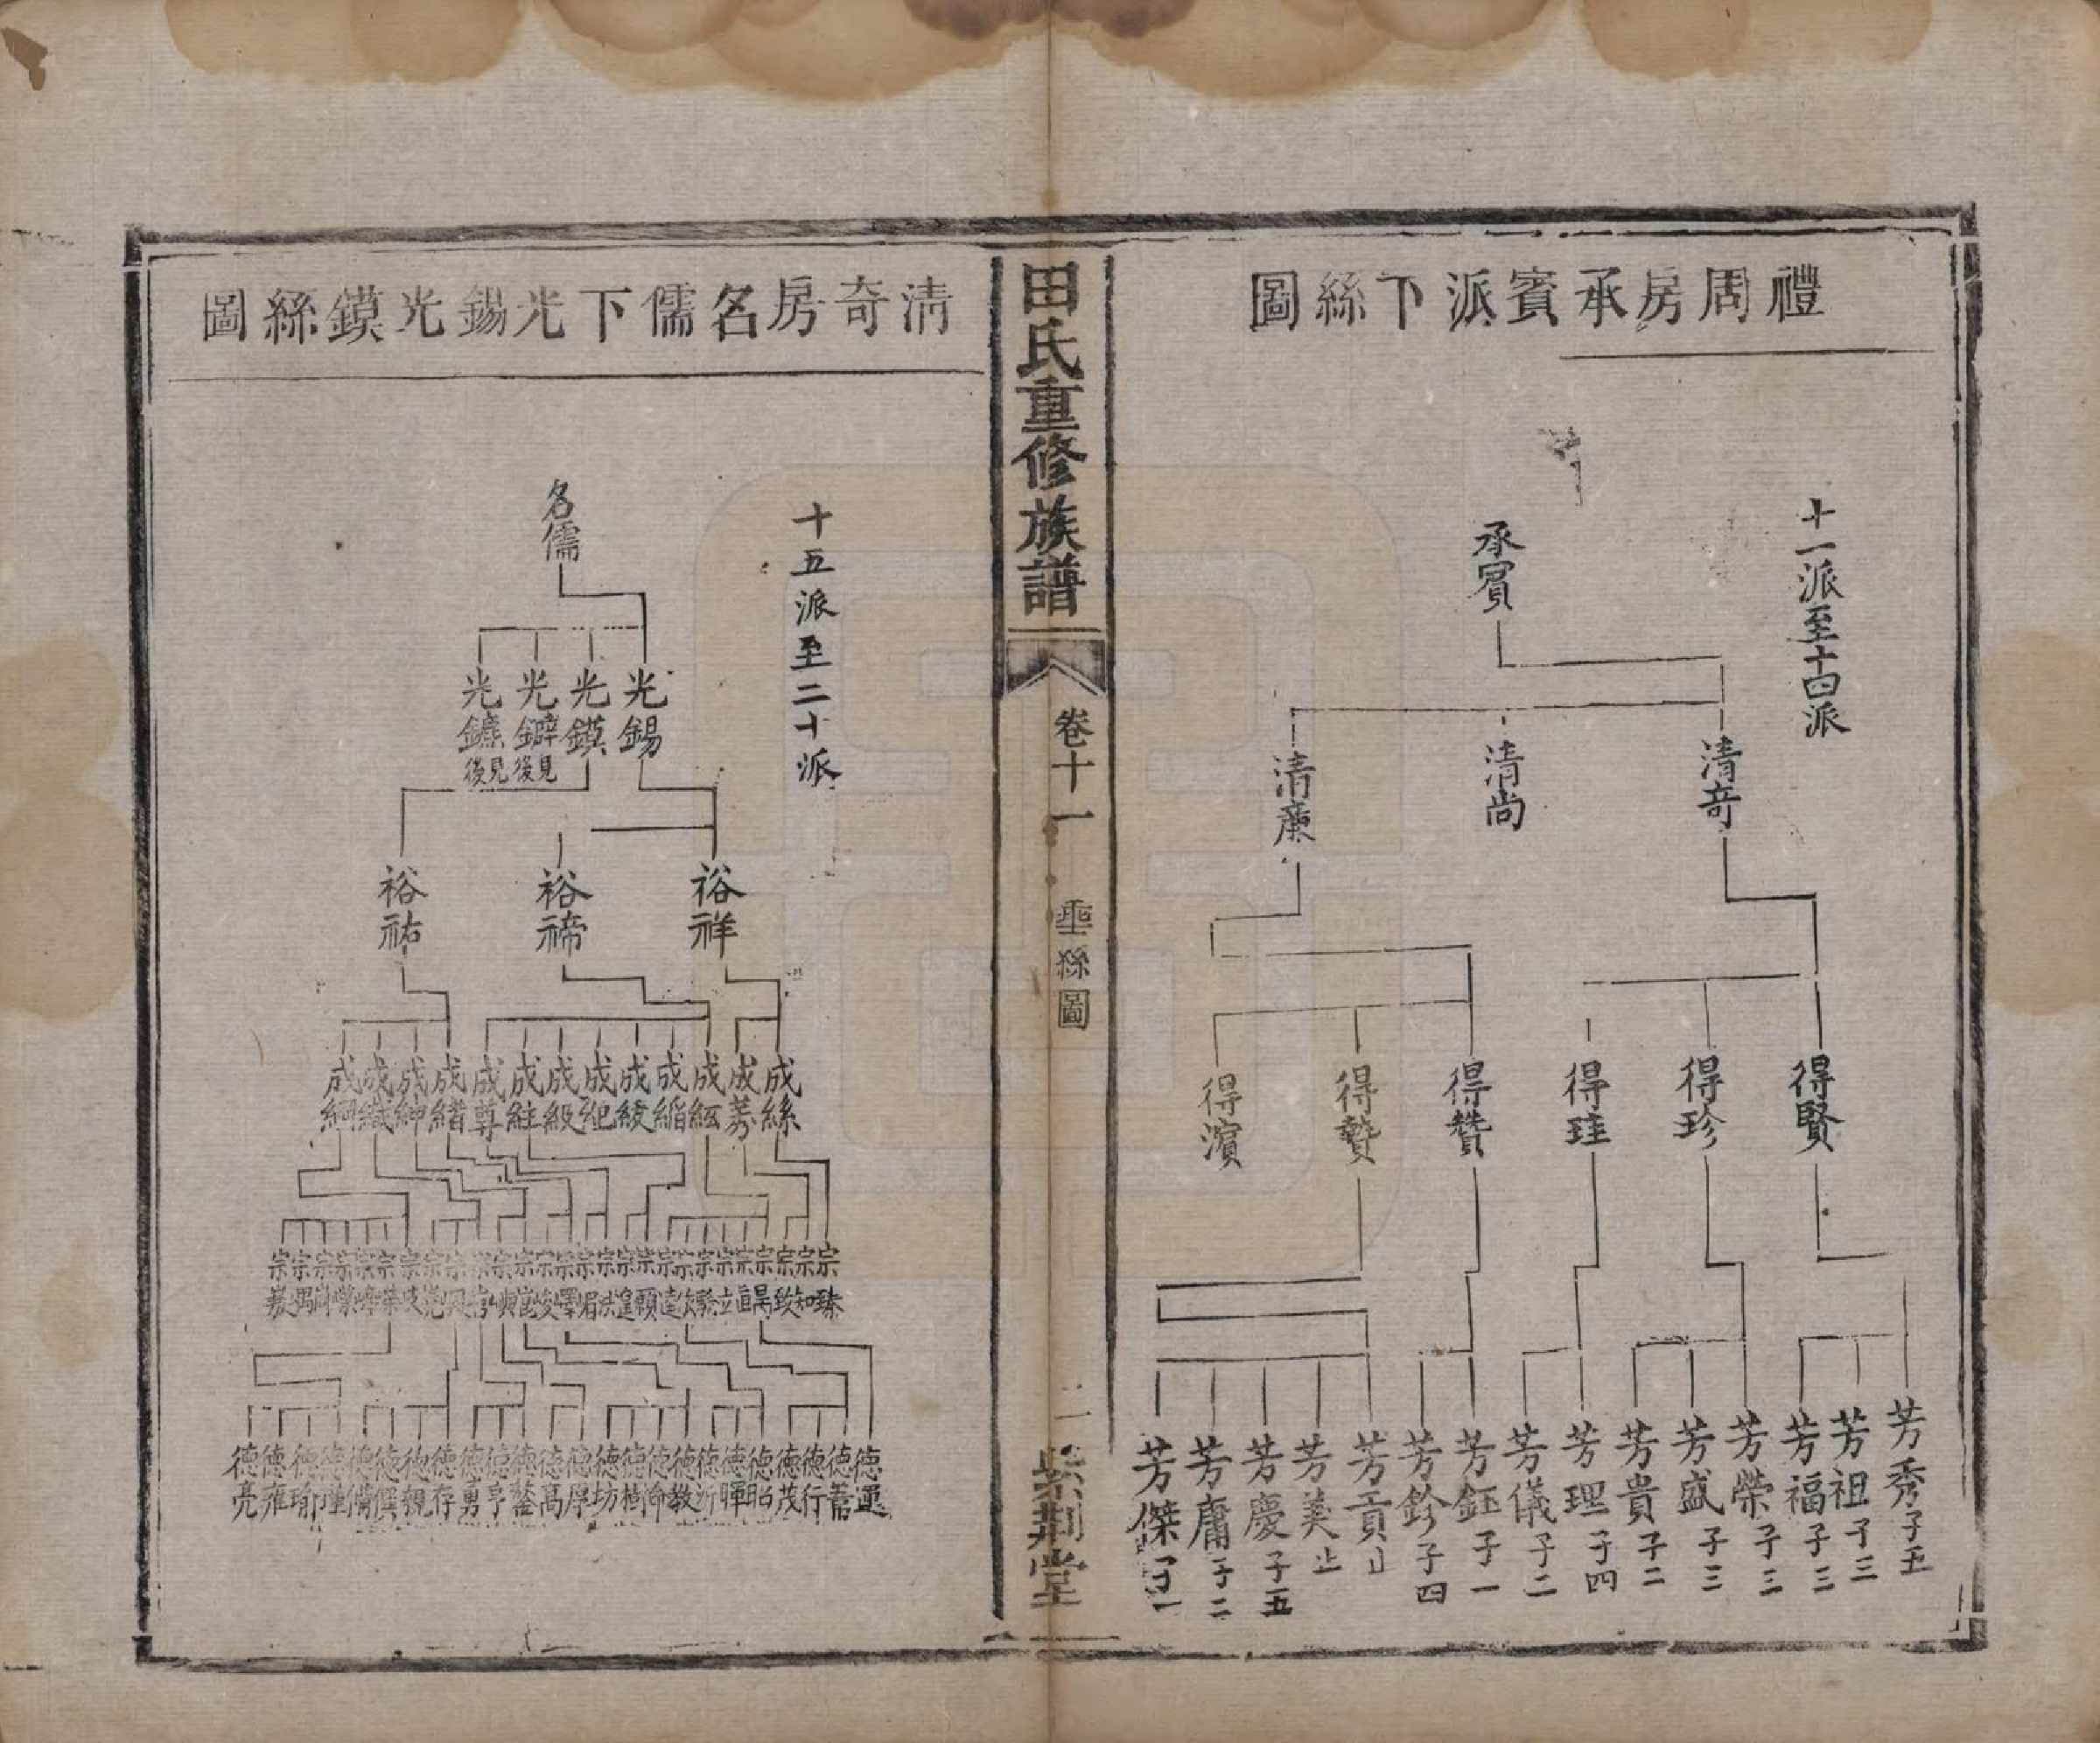 禮周房承賓派下絲圖
十一派至十四派
承賓
清奇
清尚
清廉
得賢
得珍
得珪
得贊
得贄
得濱
芳秀子五
芳祖子三
芳福子三
芳榮子三
芳盛子三
芳貴子二
芳理子四
芳儀子二
芳鈺子一
芳鈴子四
芳貢止
芳美止
芳慶子五
芳庸子二
芳傑子一
田氏重修族譜
卷十一
垂絲圖
二
紫荆堂
清奇房名儒下光錫光鏌絲圖
十五派至二十派
名儒
光錫
光鏌
光鐴見後
光鑣見後
裕祥
裕禘
裕祐
成絲
成芴
成紘
成緇
成綾
成紀
成級
成紸
成尊
成縉
成紳
成織
成綱
宗臻
宗知
宗致
宗昺
宗亘
宗立
宗欽
宗達
宗顧
宗煌
宗嶧
宗峻
德運
德蓄
德行
德茂
德昭
德暉
德新
德教
德樹
德坊
德厚
德高
德鑒
德亨
德勇
德存
德親
德備
德瑾
德瑜
德雍
德亮